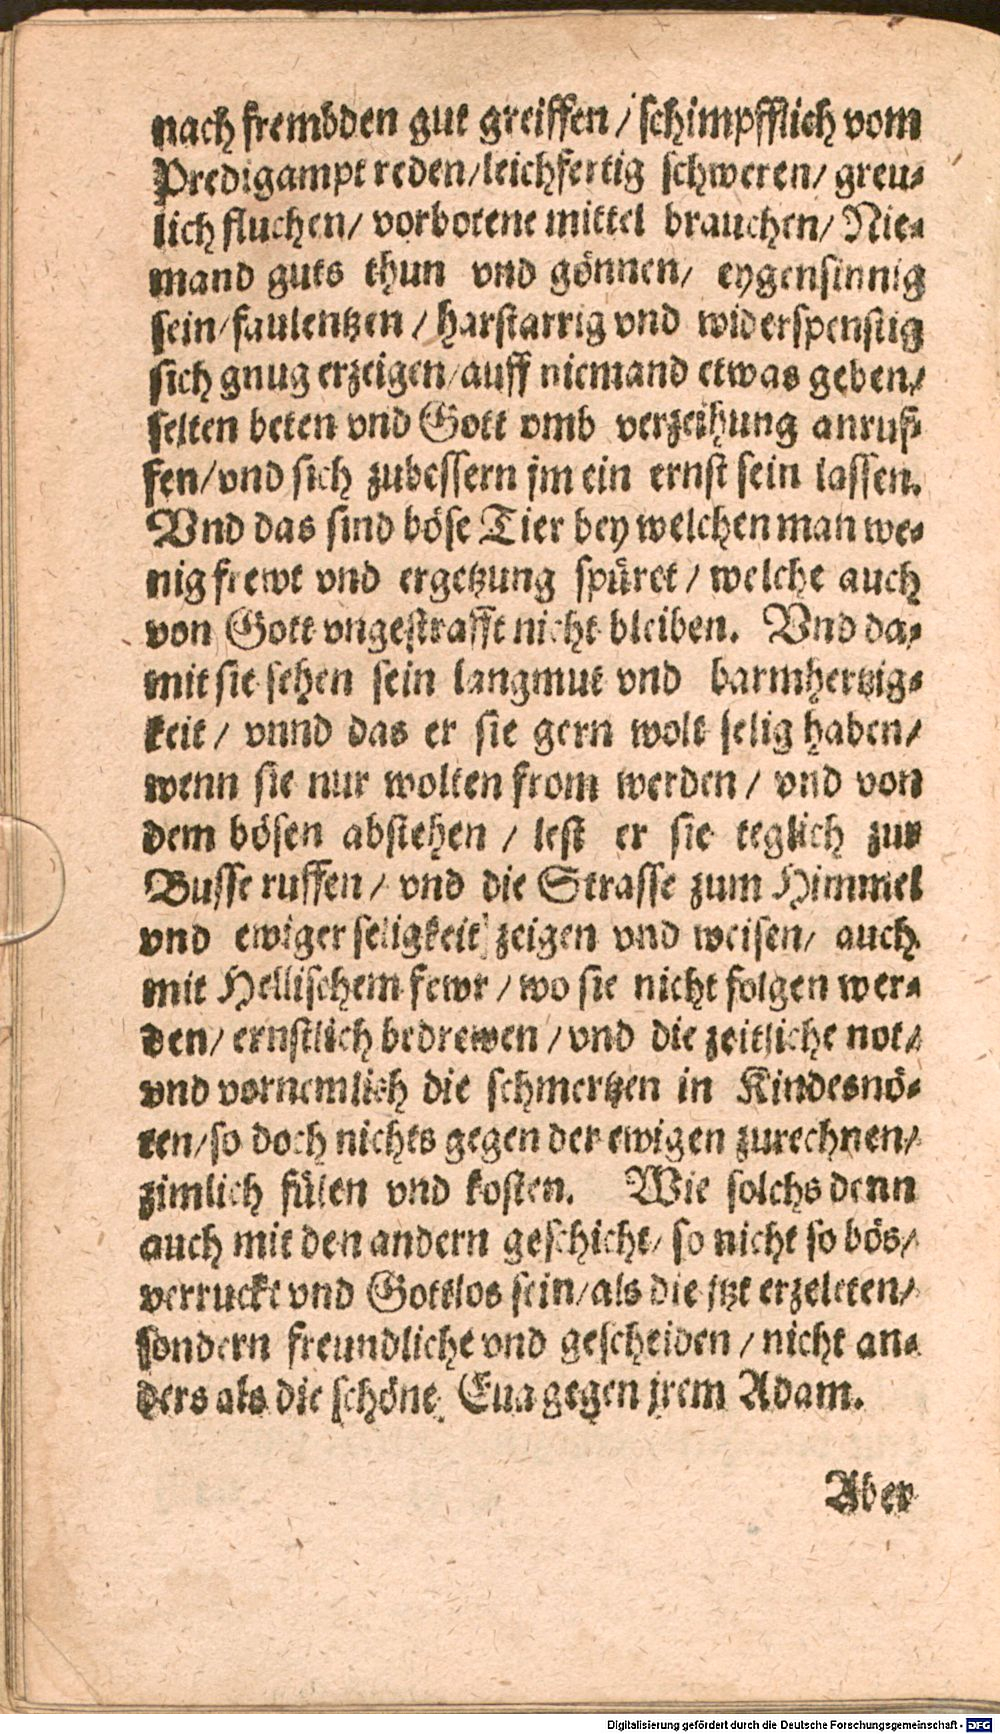 nach frembden gut greiffen / schimpfflich vom
Predigampt reden / leichfertig schweren / greu-
lich fluchen / vorbotene mittel brauchen / Nie-
mand guts thun vnd gönnen / eygensinnig
sein / faulentzen / harstarrig vnd widerspenstig
sich gnug erzeigen / auff niemand etwas geben /
selten beten vnd Gott vmb verzeihung anruf-
fen / vnd sich zubessern jm ein ernst sein lassen.
Vnd das sind böse Tier bey welchen man we-
nig frewt vnd ergetzung spüret / welche auch
von Gott vngestrafft nicht bleiben. Vnd da-
mit sie sehen sein langmut vnd barmhertzig-
keit / vnnd das er sie gern wolt selig haben /
wenn sie nur wolten from werden / vnd von
dem bösen abstehen / lest er sie teglich zur
Busse ruffen / vnd die Strasse zum Himmel
vnd ewiger seligkeit zeigen vnd weisen / auch
mit Hellischem fewr / wo sie nicht folgen wer-
den / ernstlich bedrewen / vnd die zeitliche not /
vnd vornemlich die schmertzen in Kindesnö-
ten / so doch nichts gegen der ewigen zurechnen /
zimlich fülen vnd kosten. Wie solchs denn
auch mit den andern geschicht / so nicht so bös /
verruckt vnd Gottlos sein / als die jtzt erzeleten /
sondern freundliche vnd gescheiden / nicht an-
ders als die schöne Eua gegen jrem Adam.
Aber
Digitalisierung gefördert durch die Deutsche Forschungsgemeinschaft - DFG